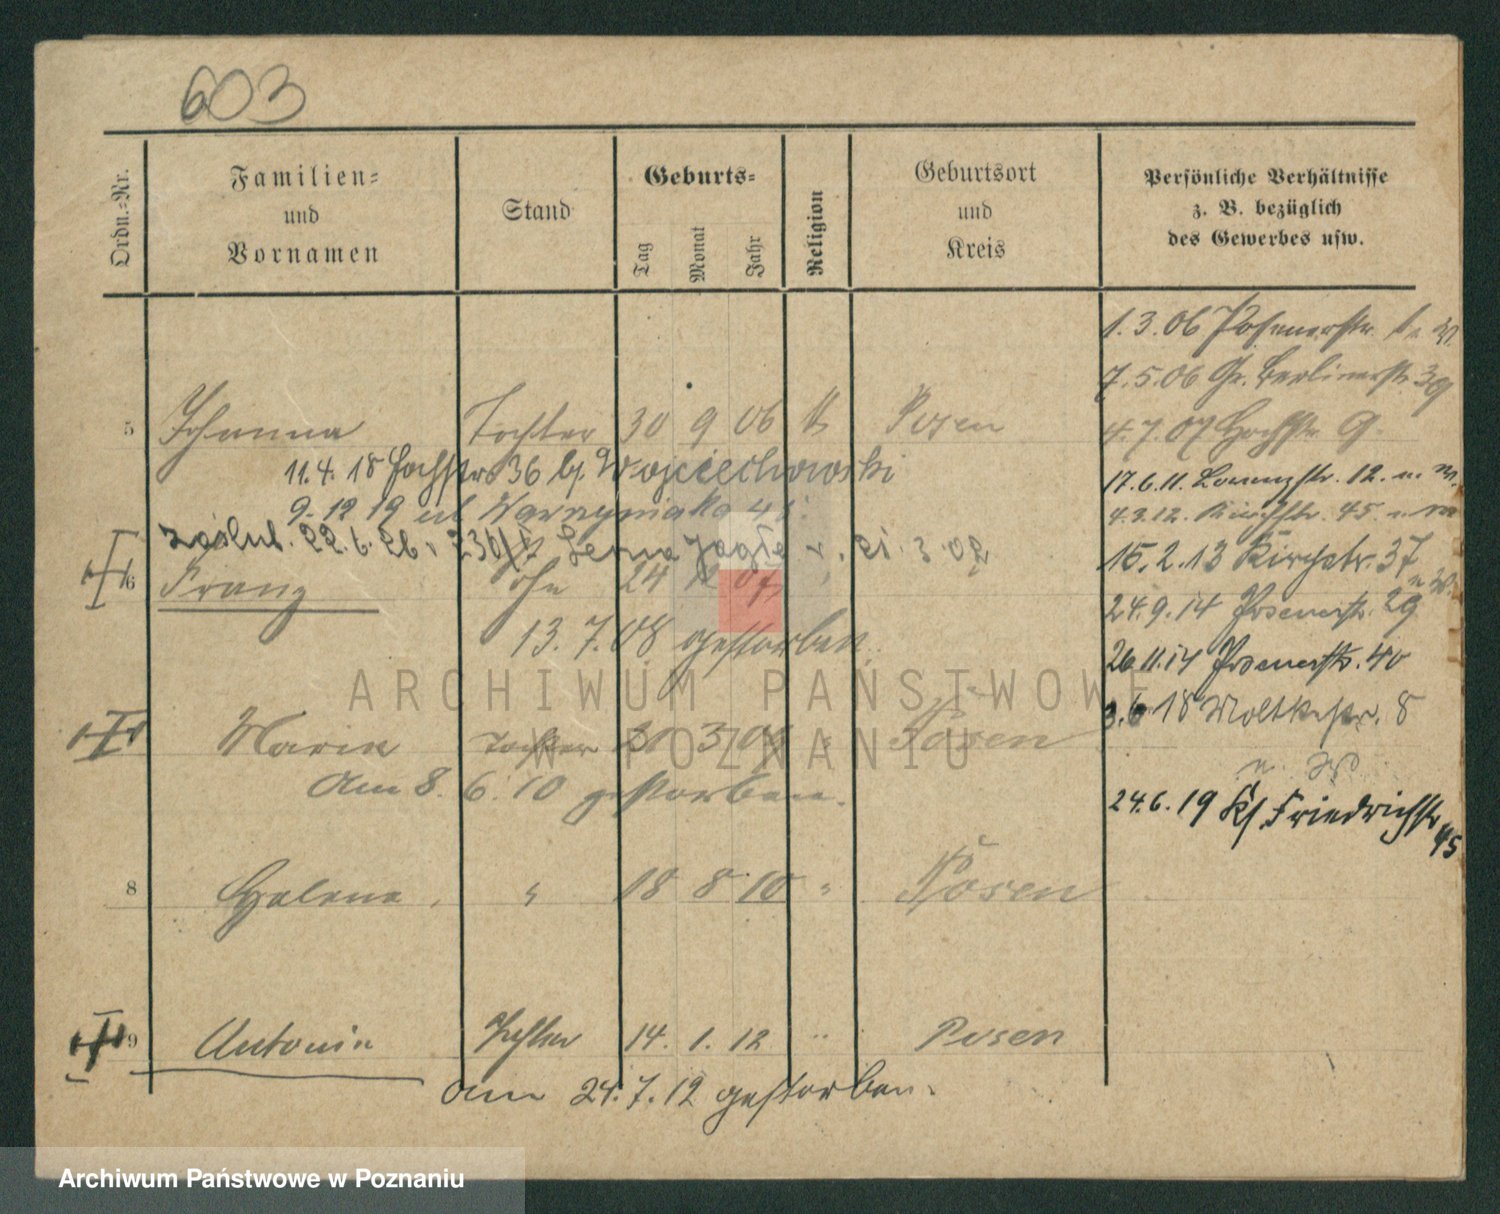 603
Ordn.-Nr.
Familien-
und
Vornamen
Stand
Geburts-
Tag
Monat
Jahr
Religion
Geburtsort
und
Kreis
Persönliche Verhältnisse
z. B. bezüglich
des Gewerbes usw.
1.3.06 Posenerstr.
7.5.06 Gr. Berlinerstr. 39
4.7.07 Hochstr. 9.
17.6.11. Lorenzstr. 12.
4.3.12. Kirchstr. 45.
15.2.13 Kirchstr. 37
24.9.14 Posenerstr. 29
26.11.14 Posenerstr. 40
3.6.18 Moltkestr. 8
24.6.19 Friedrichstr 45
5 Johanna Tochter 30 9 06 Posen
11.4.18 Hochstr. 36 bj. Wojciechowski
9.12.19 ul.
zaślub. 22.6.26
6 Franz Sohn 24 12 07
13.7.08 gestorben.
Maria Tochter 3 Posen
Am 8. 6.10 gestorben.
8 Helene " 18 8 10 " Posen
9 Antonin Tochter 14. 1. 12 " Posen
am 24.7.12 gestorben.
ARCHIWUM PAŃSTWOWE
W POZNANIU
Archiwum Państwowe w Poznaniu